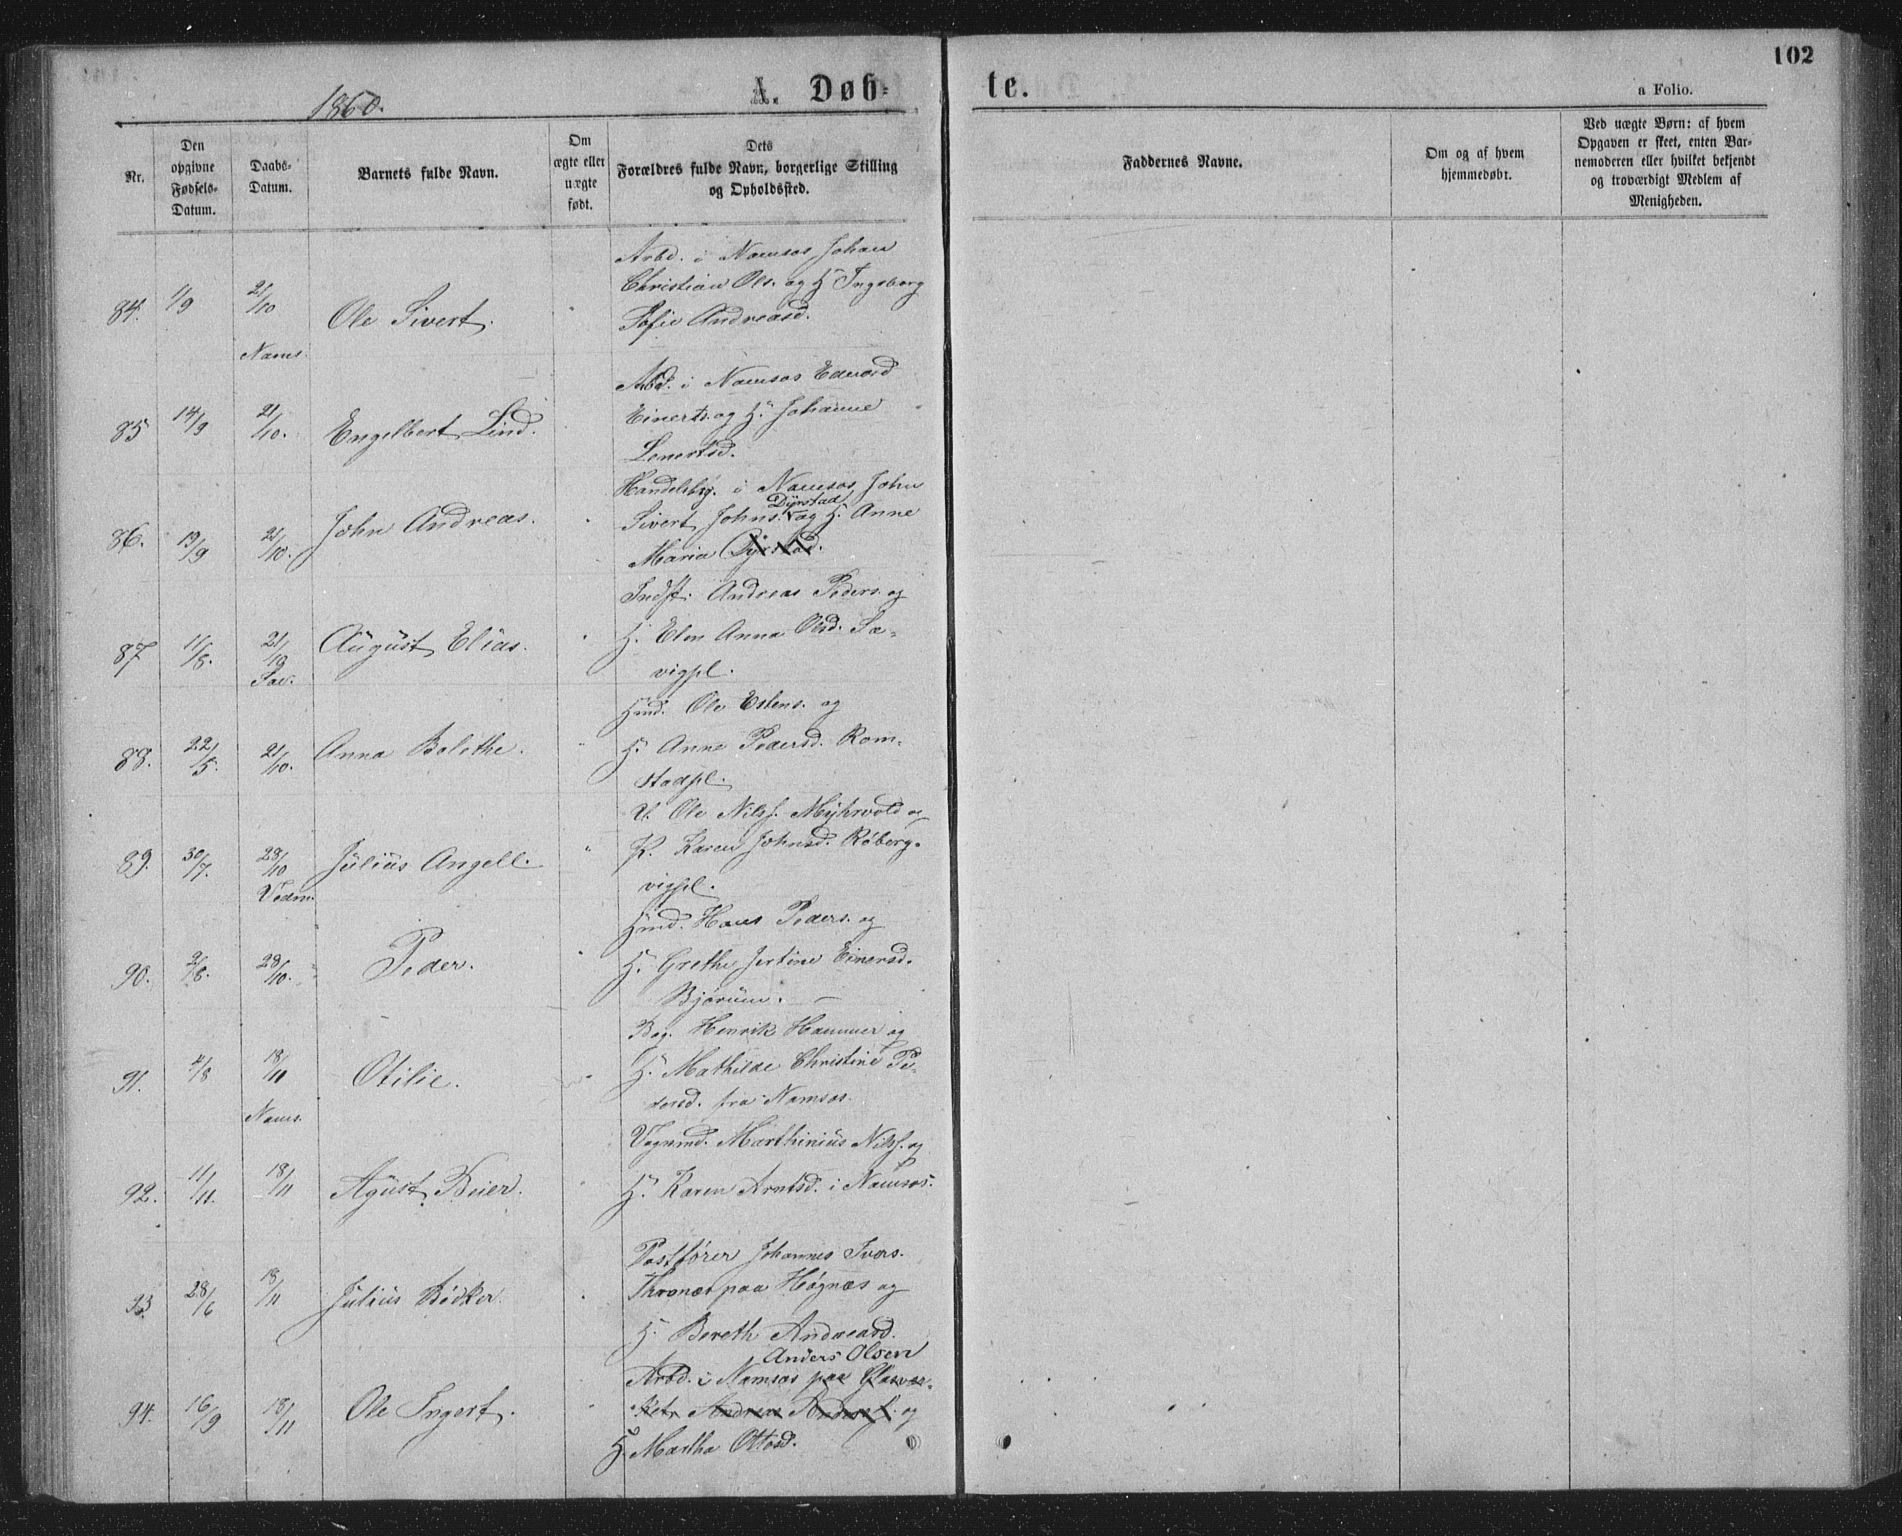 102
1860.
A. Døb-
te.
a Folio.
Nr.
Den opgivne Fødsels-Datum.
Daabs-Datum.
Barnets fulde Navn.
Om ægte eller uægte født.
Dets Forældres fulde Navn, borgerlige Stilling og Opholdssted.
Faddernes Navne.
Om og af hvem hjemmedøbt.
Ved uægte Børn: af hvem Opgaven er skeet, enten Barnemoderen eller hvilket bekjendt og troværdigt Medlem af Menigheden.
Arbd. i Namsos Johan
Christian Ols. og H. Ingeborg
84. 1/9 21/10 Ole Sivert. Sofie Andreasd.
Nams.
Arbd. i Namsos Edvard
85 14/9 21/10. Engelbert Lind. Einerts. og H. Johanne
Lenertsd.
Handelsbg. i Namsos John
Dÿrstad
86. 19/9 21/10. John Andreas. Sivert Johns. og H. Anne
Maria Dÿrstad.
Indst. Andreas Peders. og
87 11/8. 21/10 August Elias. H. Elen Anna Olsd. Sæ-
Sæv. vigpl.
Hmd. Ole Estens. og
88. 22/5. 21/10. Anna Bolethe. H. Anne Pedersd. Rom-
stadpl.
U. Ole Nilss. Mÿhrvold og
89. 30/7. 28/10 Julius Angell. P. Karen Johnsd. Røberg-
Vedm. vigpl.
Hmd. Hans Peders. og
90. 2/8. 28/10. Peder. H. Grethe Jertine Einersd.
Bjørum. —
Bag. Henrik Hammer og
91. 4/8 18/11 Otilie. H. Mathilde Christine Pe-
Nams. dersd. fra Namsos.
Vognmd. Marthinius Nilss. og
92. 11/11. 18/11 Agust Beier. H. Karen Arntsd. i Namsos.
Postfører Johannes Ivers.
93 28/6 18/11 Julius Bödker. Thronæs paa Högnæs og
H. Bereth Andreasd.
Anders Olsen
Arbd. i Namsos paa Glasvær-
94. 16/9 18/11 Ole Ingert. ket Andreas og
H. Martha Ottosd.